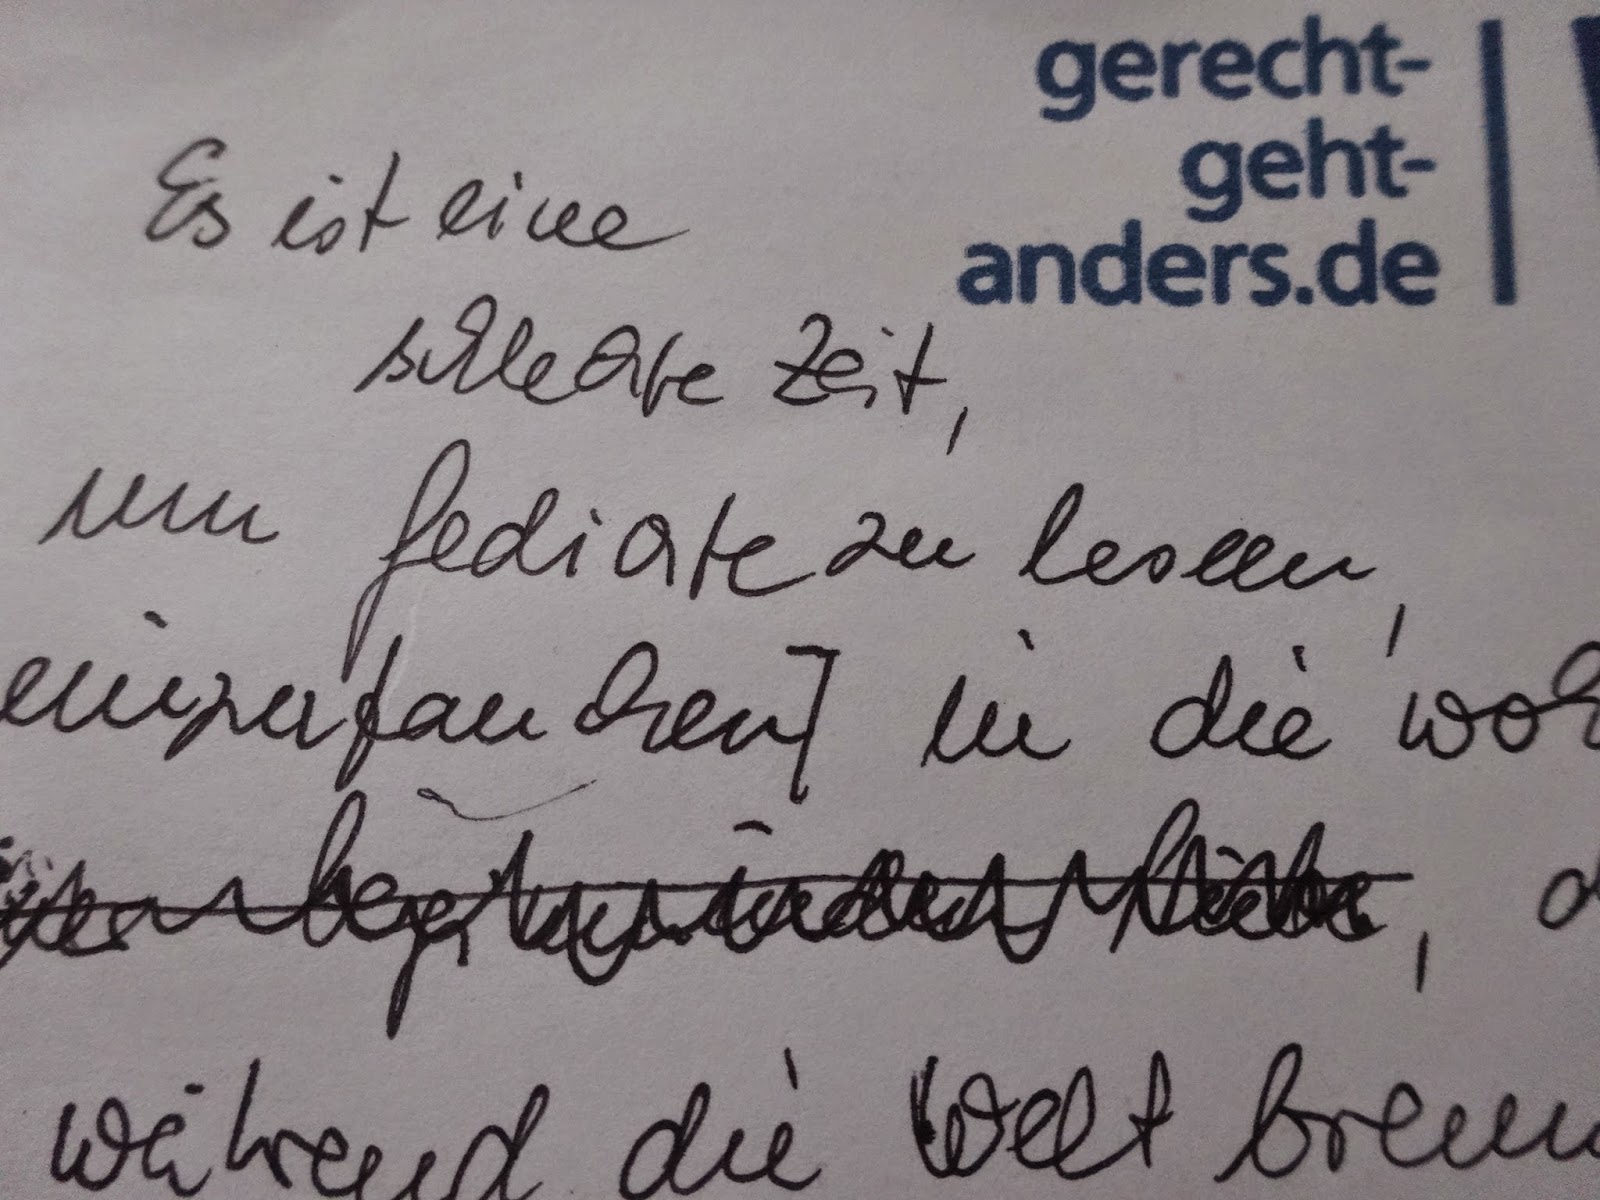 gerecht-
geht-
anders.de
Es ist eine
schlechte Zeit,
um Gedichte zu lesen,
einzutauchen] in die
während die Welt